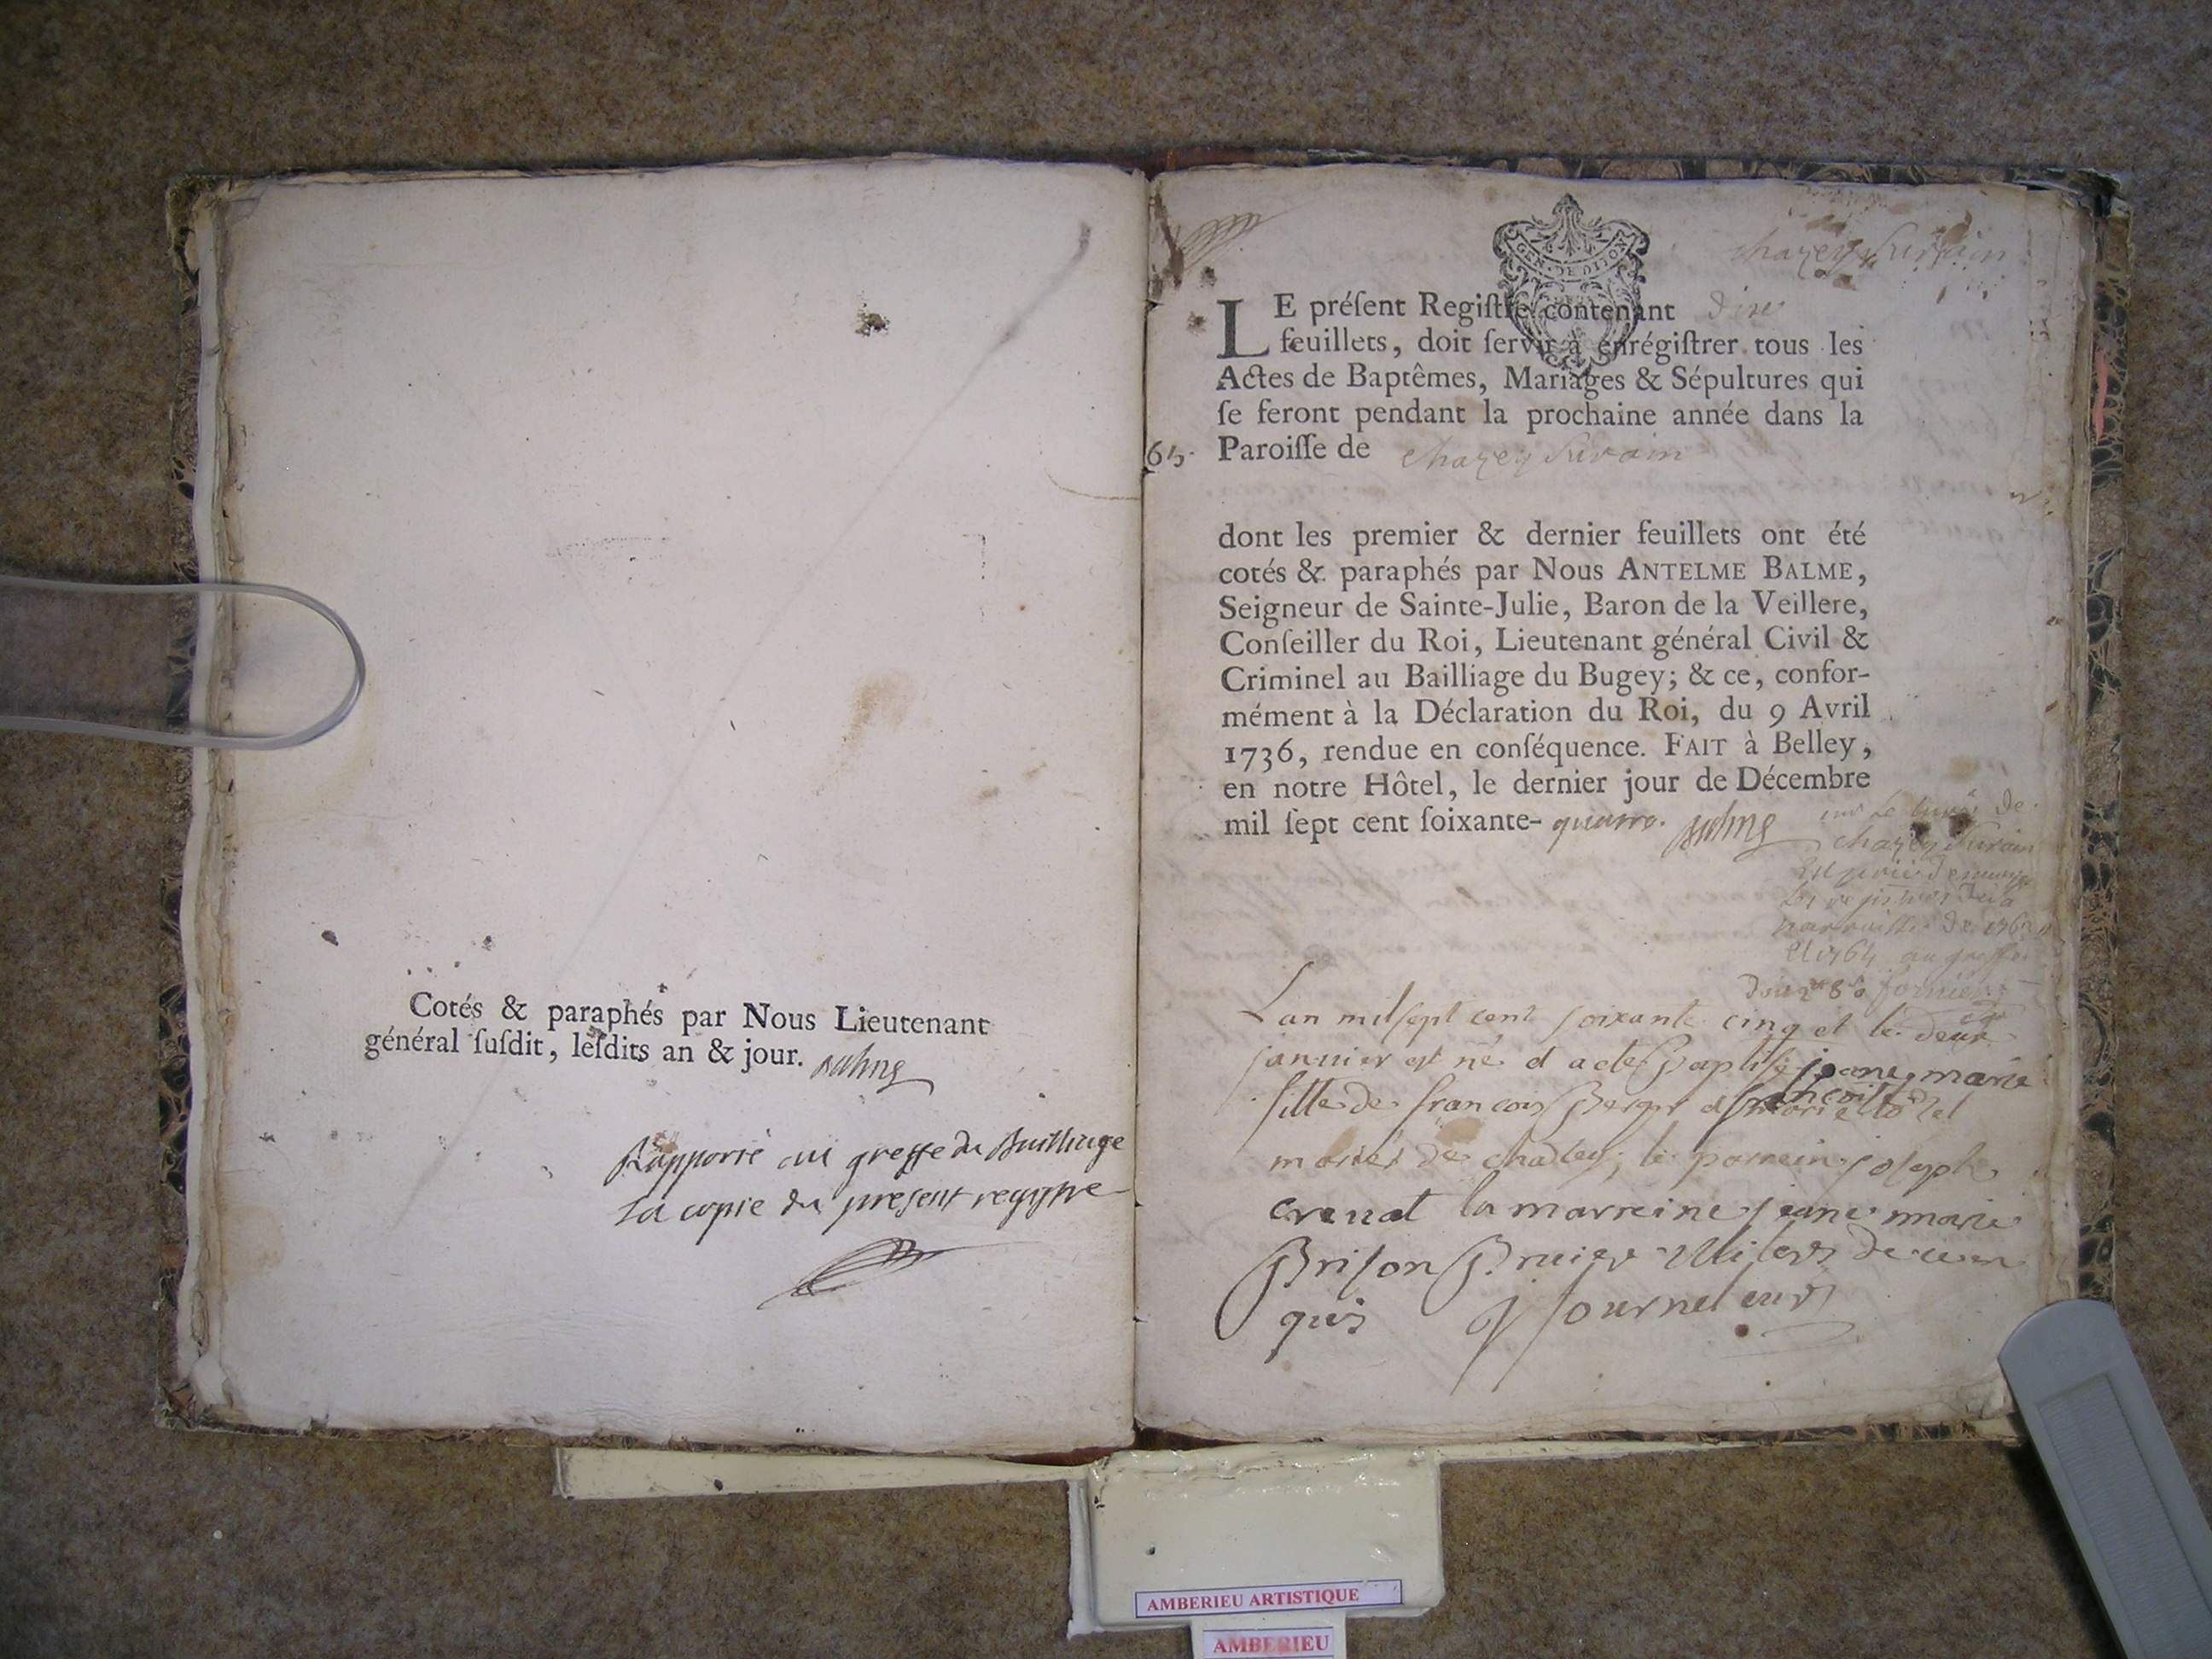 Cotés & paraphés par Nous Lieutenant
général ſuſdit, leſdits an & jour. Balme
Rapporté au greffe du Bailliage
la copie du present registre
GEN. DE DIJON
chazey Surain
LE préſent Regiſtre contenant dix
feuillets, doit ſervir à enrégiſtrer tous les
Actes de Baptêmes, Mariages & Sépultures qui
ſe feront pendant la prochaine année dans la
65. Paroiſſe de chazey Surain
dont les premier & dernier feuillets ont été
cotés & paraphés par Nous ANTELME BALME,
Seigneur de Sainte-Julie, Baron de la Veillere,
Conſeiller du Roi, Lieutenant général Civil &
Criminel au Bailliage du Bugey; & ce, confor-
mément à la Déclaration du Roi, du 9 Avril
1736, rendue en conſéquence. FAIT à Belley,
en notre Hôtel, le dernier jour de Décembre
mil ſept cent ſoixante- quatre. Balme
de
chazey Surain
est prié
les registres de
parroisse de 1763
et 1764 au greffe
Lan mil sept cent soixante cinq et le deux
janvier est né et a eté Baptisé jeane marie
fille de francois Berger et
mariés de chazey, le parrein joseph
crenat la marreine jeane marie
Brison
quis fournel curé
AMBERIEU ARTISTIQUE
AMBERIEU